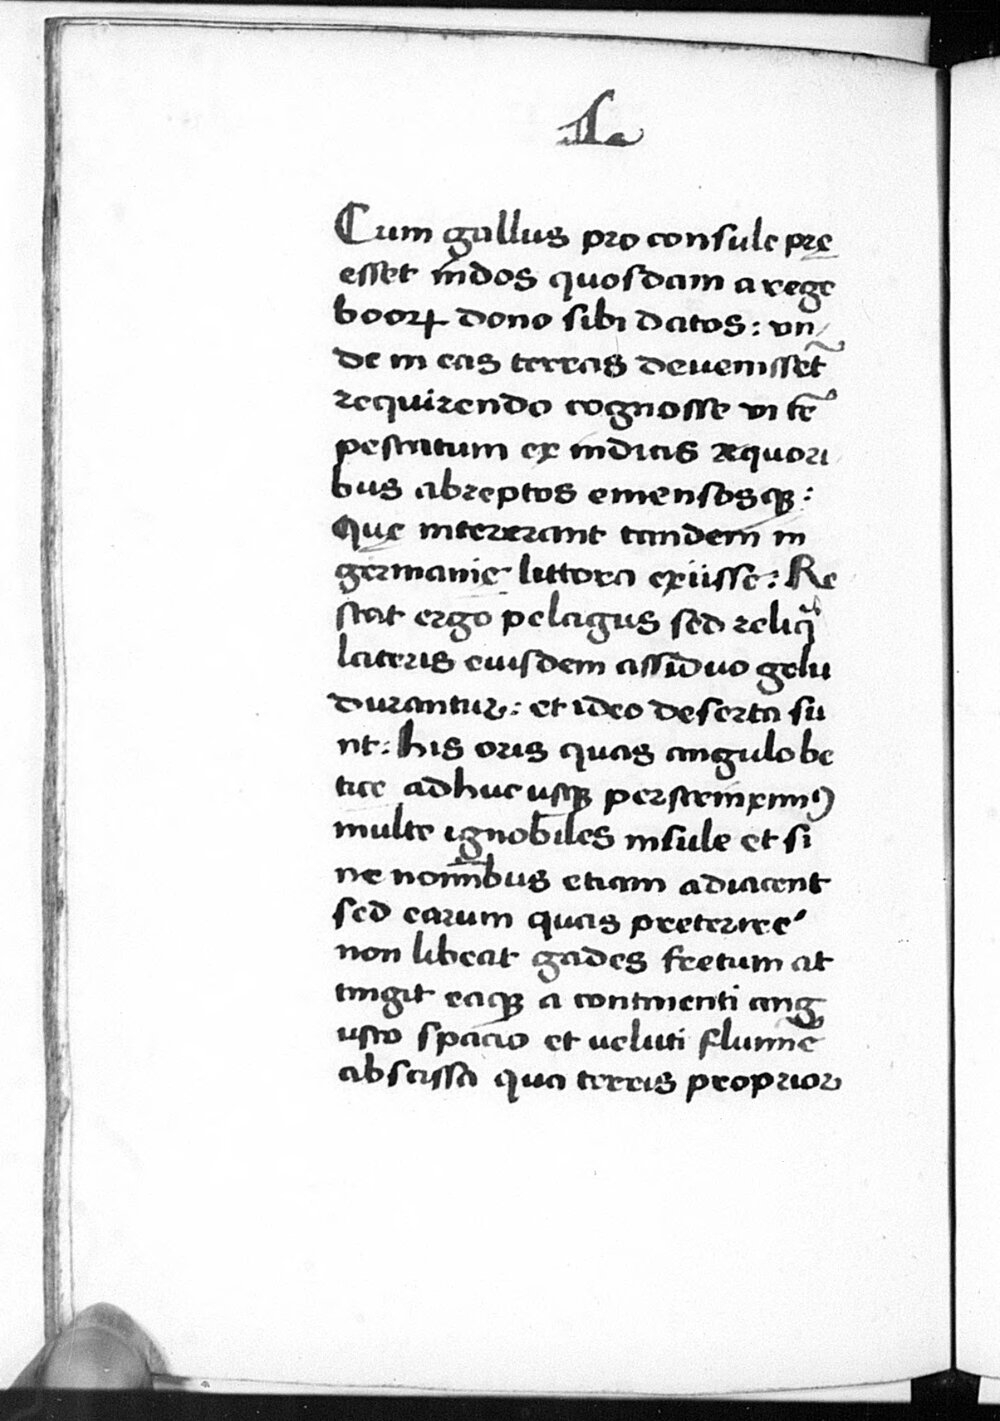 Cum gallus pro consule prę
esset indos quosdam a rege
boorꝝ dono sibi datos: vn/
de in eas terras deuenisset̃
requirendo cognosse vi tē
pestatum ex indicis æquori
bus abreptos emensosqꝫ:
Quę intererant tandem in
germanie littora exiisse: Re
stat ergo pelagus sed reliq̃
lateris eiusdem assiduo gelu
durantur: et ideo deserta su
nt: his oris quas angulo be
tice adhuc usqꝫ perstrinximꝰ
multe ignobiles insule et si
ne nominibus etiam adiacent
sed earum quas preterire
non libeat gades fretum at
tingit eaqꝫ a continenti ang
usto spacio et ueluti flumīe
abscissa qua terris propior